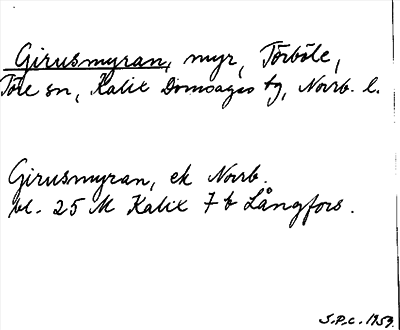 Girusmyran, myr, Törböle,
Töre sn, Kalix Domsagas tg, Norrb. l.
Girusmyran, ek Norrb.
bl. 25 M Kalix 7 b Långfors.
S.P.C. 1953.